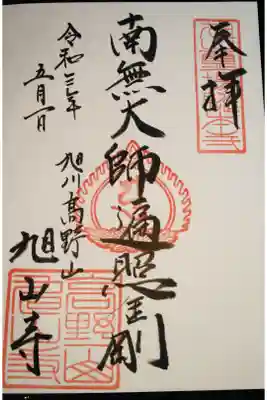 奉拝
南無大師遍照金剛
旭川高野山
旭山寺
令和三年
五月一日